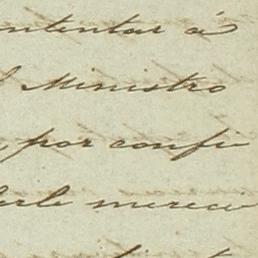 ntentar á
l Ministro
por confi
erle mereci